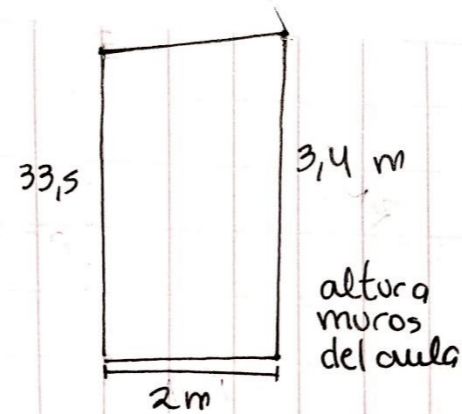 33,5
3,4 m
altura
muros
del aula
2m